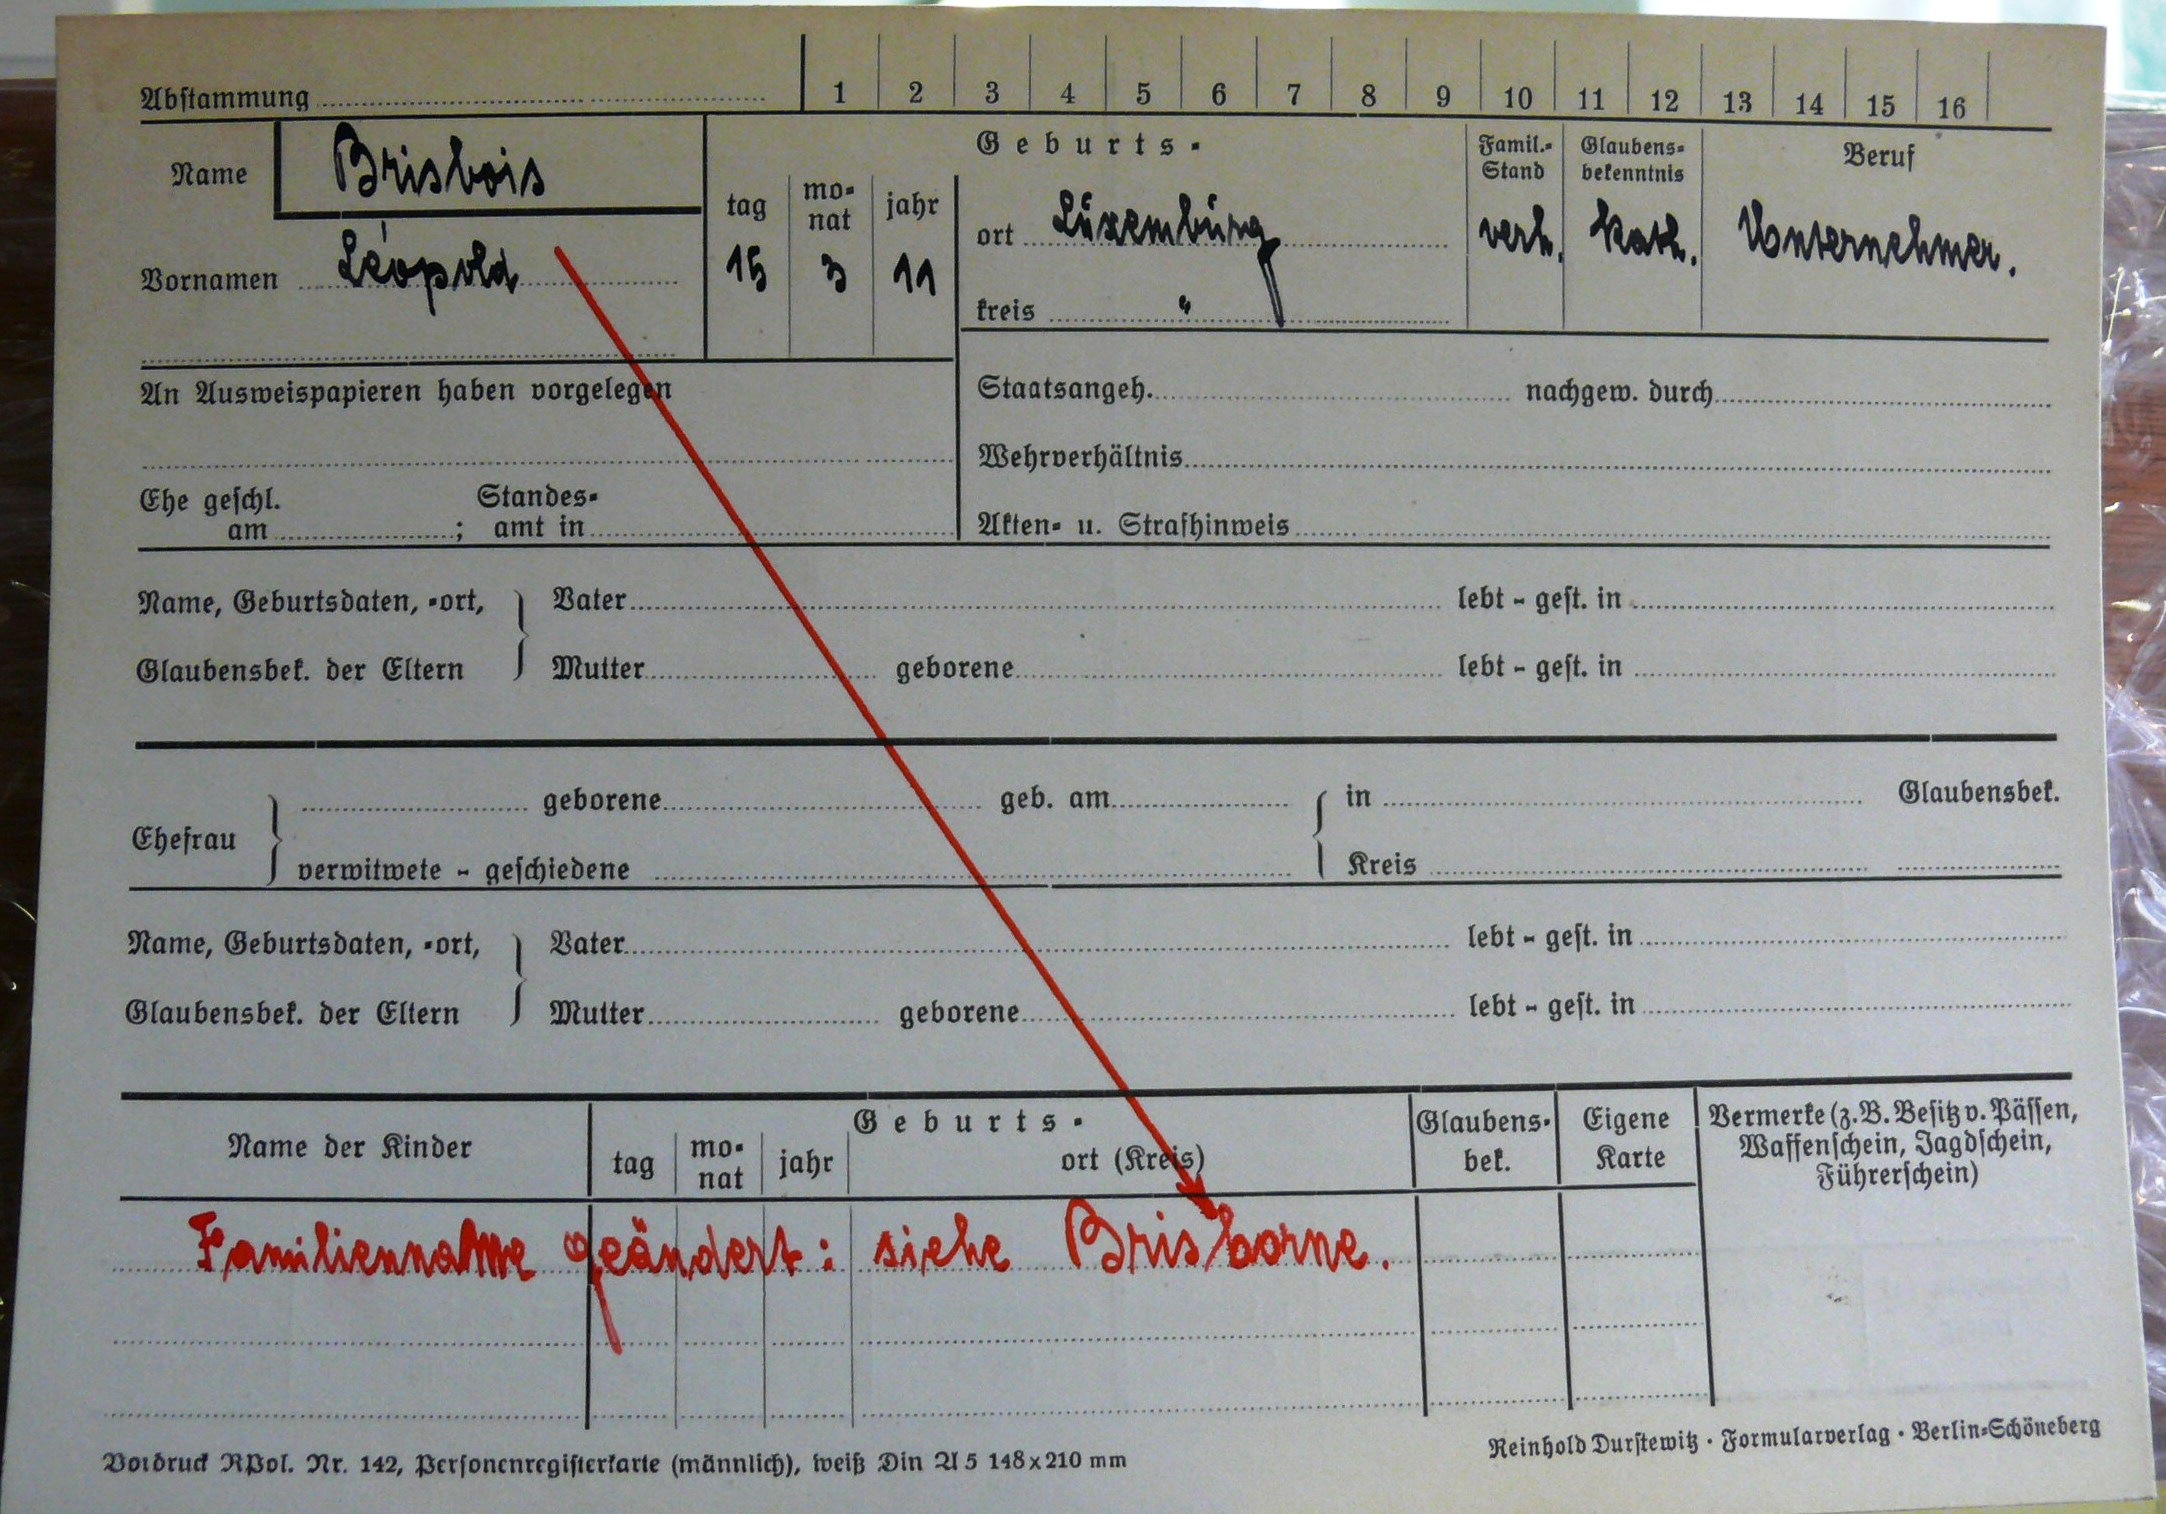 Abstammung 1 2 3 4 5 6 7 8 9 10 11 12 13 14 15 16
Name Brisbois
Vornamen Léopold
Geburts-
tag mo-nat jahr
15 3 11
ort Luxemburg
kreis "
Famil.-Stand
verh.
Glaubens-bekenntnis
kath.
Beruf
Unternehmer.
An Ausweispapieren haben vorgelegen
Staatsangeh. nachgew. durch
Wehrverhältnis
Ehe geschl. am ; Standes-amt in
Akten- u. Strafhinweis
Name, Geburtsdaten, -ort, Vater lebt - gest. in
Glaubensbek. der Eltern Mutter geborene lebt - gest. in
Ehefrau geborene geb. am in Glaubensbek.
verwitwete - geschiedene Kreis
Name, Geburtsdaten, -ort, Vater lebt - gest. in
Glaubensbek. der Eltern Mutter geborene lebt - gest. in
Name der Kinder
Geburts-
tag mo-nat jahr ort (Kreis)
Glaubens-bek.
Eigene Karte
Vermerke (z.B. Besitz v. Pässen,
Waffenschein, Jagdschein,
Führerschein)
Familienname geändert: siehe Brisborne.
Vordruck RPol. Nr. 142, Personenregisterkarte (männlich), weiß Din A 5 148x210 mm
Reinhold Durstewitz · Formularverlag · Berlin-Schöneberg